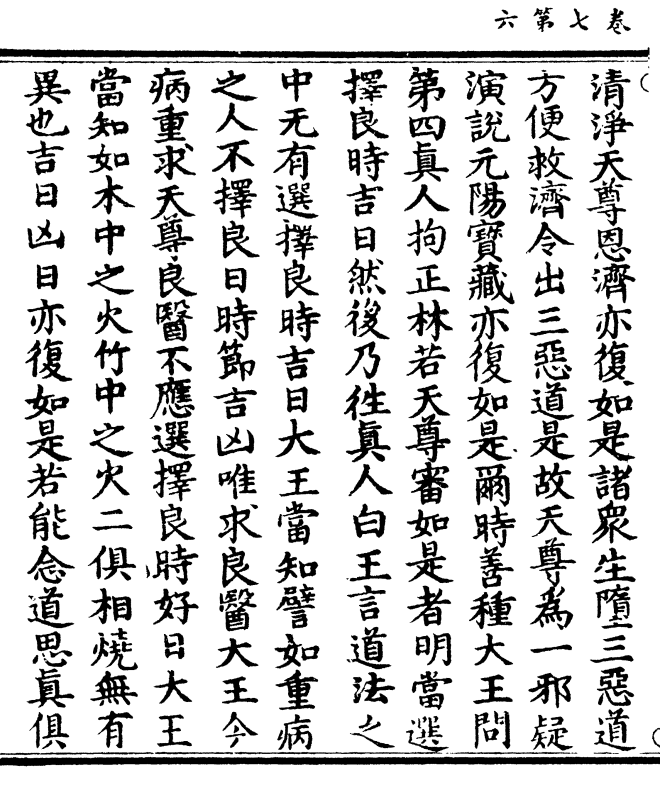 卷七第六
清淨天尊恩濟亦復如是諸衆生墮三惡道
方便救濟令出三惡道是故天尊爲一邪疑
演說元陽寶藏亦復如是爾時善種大王問
第四眞人拘正林若天尊審如是者明當選
擇良時吉日然後乃徃眞人白王言道法之
中无有選擇良時吉日大王當知譬如重病
之人不擇良日時節吉凶唯求良醫大王今
病重求天尊良醫不應選擇良時好日大王
當知如木中之火竹中之火二俱相燒無有
異也吉日凶日亦復如是若能念道思眞俱